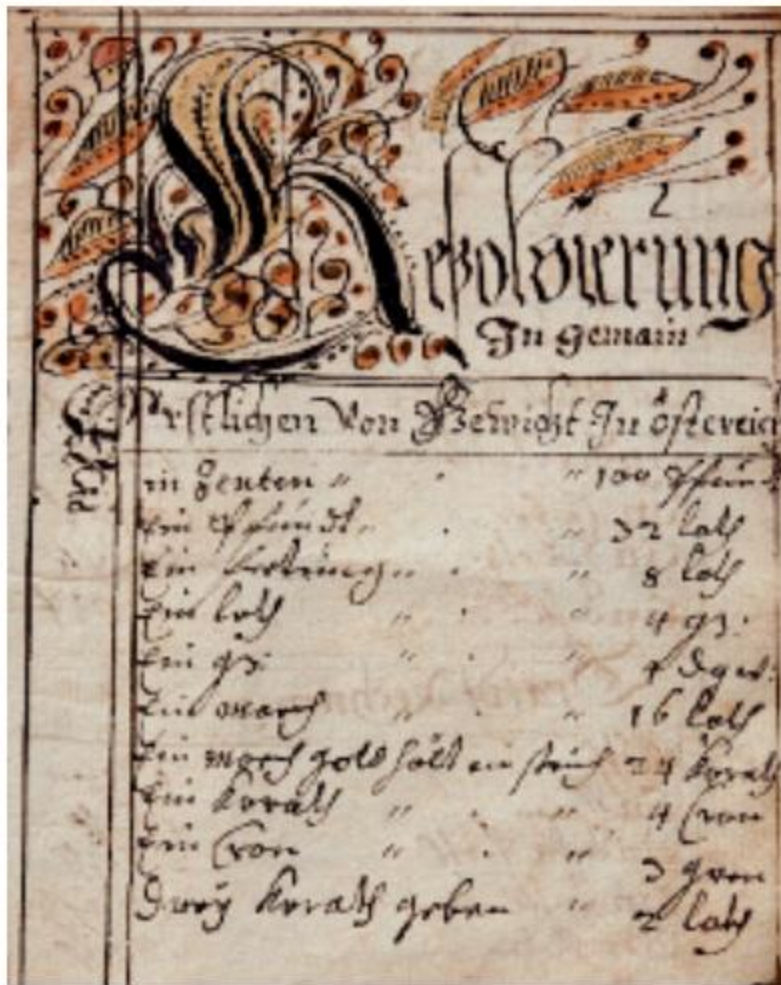 Resolvierung
In gemain
Erstlichen Von Gewicht In östereich
Ein Zenten " " 100 Pfund
Ein Pfundt " " 32 loth
Ein " " 8 loth
Ein loth " " 4 qz:
Ein qz: " " 4
Ein march " " 16 loth
Ein march gold hält ein 24 Karath
Ein Karath " " 4 Cron
Ein Cron " " 3 gren
Drey Karath geben " 2 loth